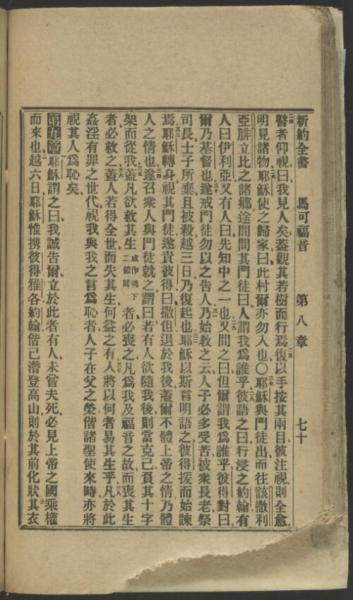 新約全書　馬可福音　第八章　七十
瞽者仰視曰我見人矣蓋觀其若樹而行焉復以手按其兩目彼注視則全愈
明見諸物耶穌使之歸家曰此村爾亦勿入也〇耶穌與門徒出而往該撒利
亞腓立比之諸鄉途間問其門徒曰人謂我爲誰乎彼語之曰行浸之約翰有
人曰伊利亞又有人曰先知中之一也又問之曰但爾謂我爲誰乎彼得對曰
爾乃基督也遂戒門徒勿以之告人乃始敎之云人子必多受苦被衆長老祭
司長士子所棄且被殺越三日乃復起也耶穌以斯言明語之彼得援而始諫
焉耶穌轉身視其門徒遂責彼得曰撒但退於我後蓋爾不體上帝之情乃體
人之情也遂召衆人與門徒就之謂曰若有人欲隨我後則當克己負其十字
架而從我蓋凡欲救其生或作魂下二節同者必喪之凡爲我及福音之故而喪其生
者必救之蓋人若得全世而失其生何益之有人將以何者易其生乎凡於此
姦淫有罪之世代視我與我之言爲恥者人子在父之榮偕諸聖使來時亦將
視其人爲恥矣
第九章耶穌謂之曰我誠告爾立於此者有人未嘗夫死必見上帝之國乘權
而來也越六日耶穌惟携彼得雅各約翰偕己潛登高山則於其前化狀其衣